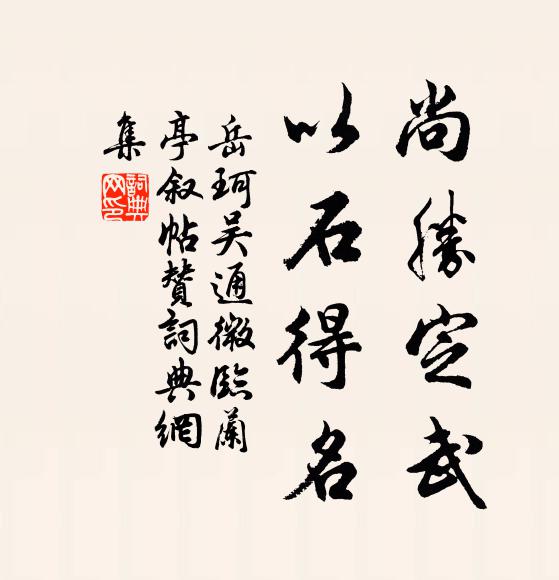 尚勝定武
以石得名
岳珂吴通微臨蘭
亭叙帖贊詞典網
集
詞典網印